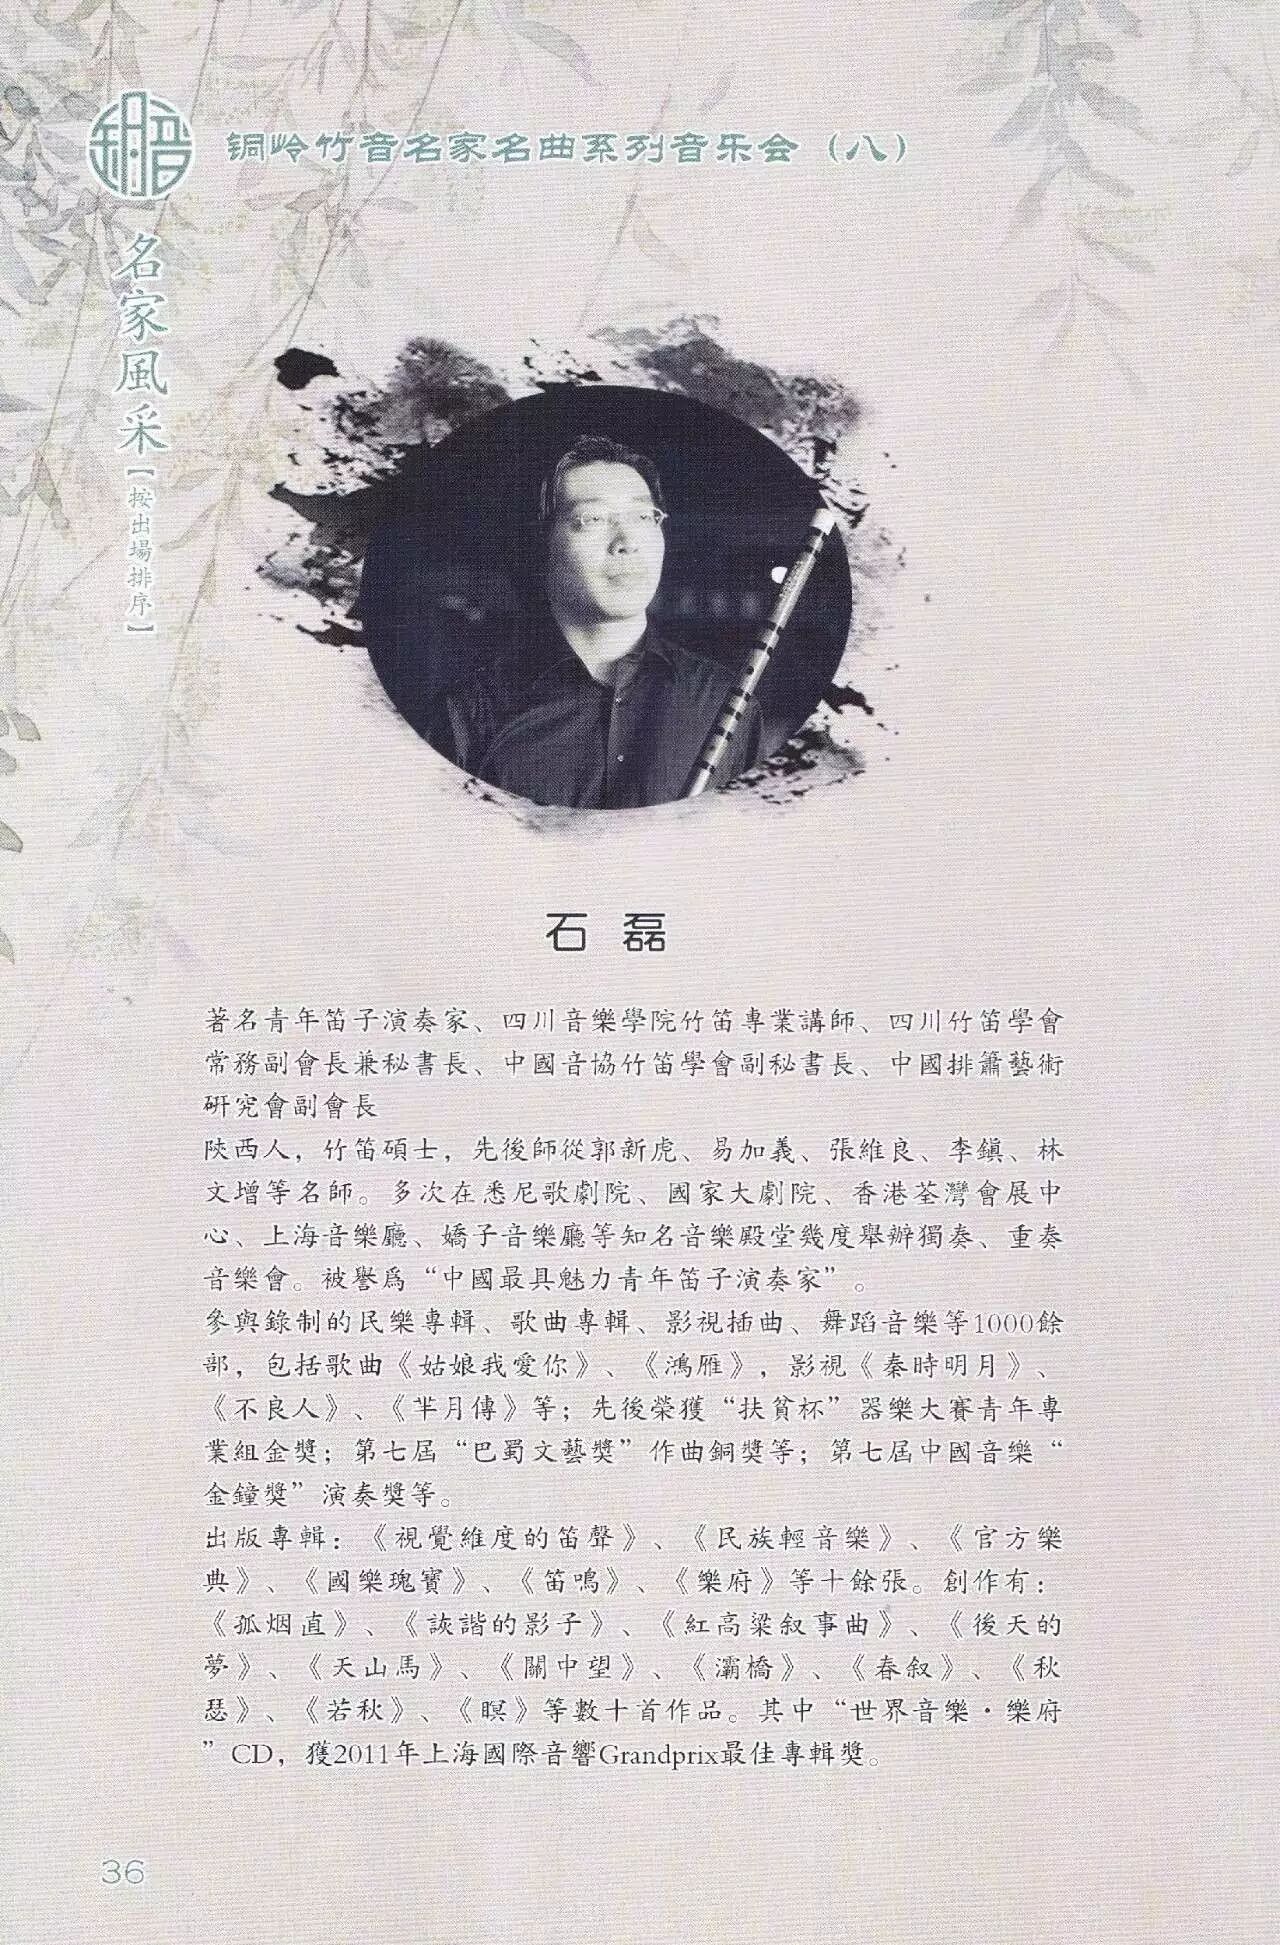 铜岭竹音名家名曲系列音乐会（八）
名家風采【按出場排序】
石 磊
著名青年笛子演奏家、四川音樂學院竹笛專業講師、四川竹笛學會
常務副會長兼秘書長、中國音協竹笛學會副秘書長、中國排簫藝術
研究會副會長
陝西人，竹笛碩士，先後師從郭新虎、易加義、張維良、李鎮、林
文增等名師。多次在悉尼歌劇院、國家大劇院、香港荃灣會展中
心、上海音樂廳、嬌子音樂廳等知名音樂殿堂幾度舉辦獨奏、重奏
音樂會。被譽爲“中國最具魅力青年笛子演奏家”。
參與錄制的民樂專輯、歌曲專輯、影視插曲、舞蹈音樂等1000餘
部，包括歌曲《姑娘我愛你》、《鴻雁》，影視《秦時明月》、
《不良人》、《芈月傳》等；先後榮獲“扶貧杯”器樂大賽青年專
業組金獎；第七屆“巴蜀文藝獎”作曲銅獎等；第七屆中國音樂“
金鐘獎”演奏獎等。
出版專輯：《視覺維度的笛聲》、《民族輕音樂》、《官方樂
典》、《國樂瑰寶》、《笛鳴》、《樂府》等十餘張。創作有：
《孤烟直》、《詼諧的影子》、《紅高粱叙事曲》、《後天的
夢》、《天山馬》、《關中望》、《灞橋》、《春叙》、《秋
瑟》、《若秋》、《瞑》等數十首作品。其中“世界音樂·樂府
”CD，獲2011年上海國際音響Grandprix最佳專輯獎。
36